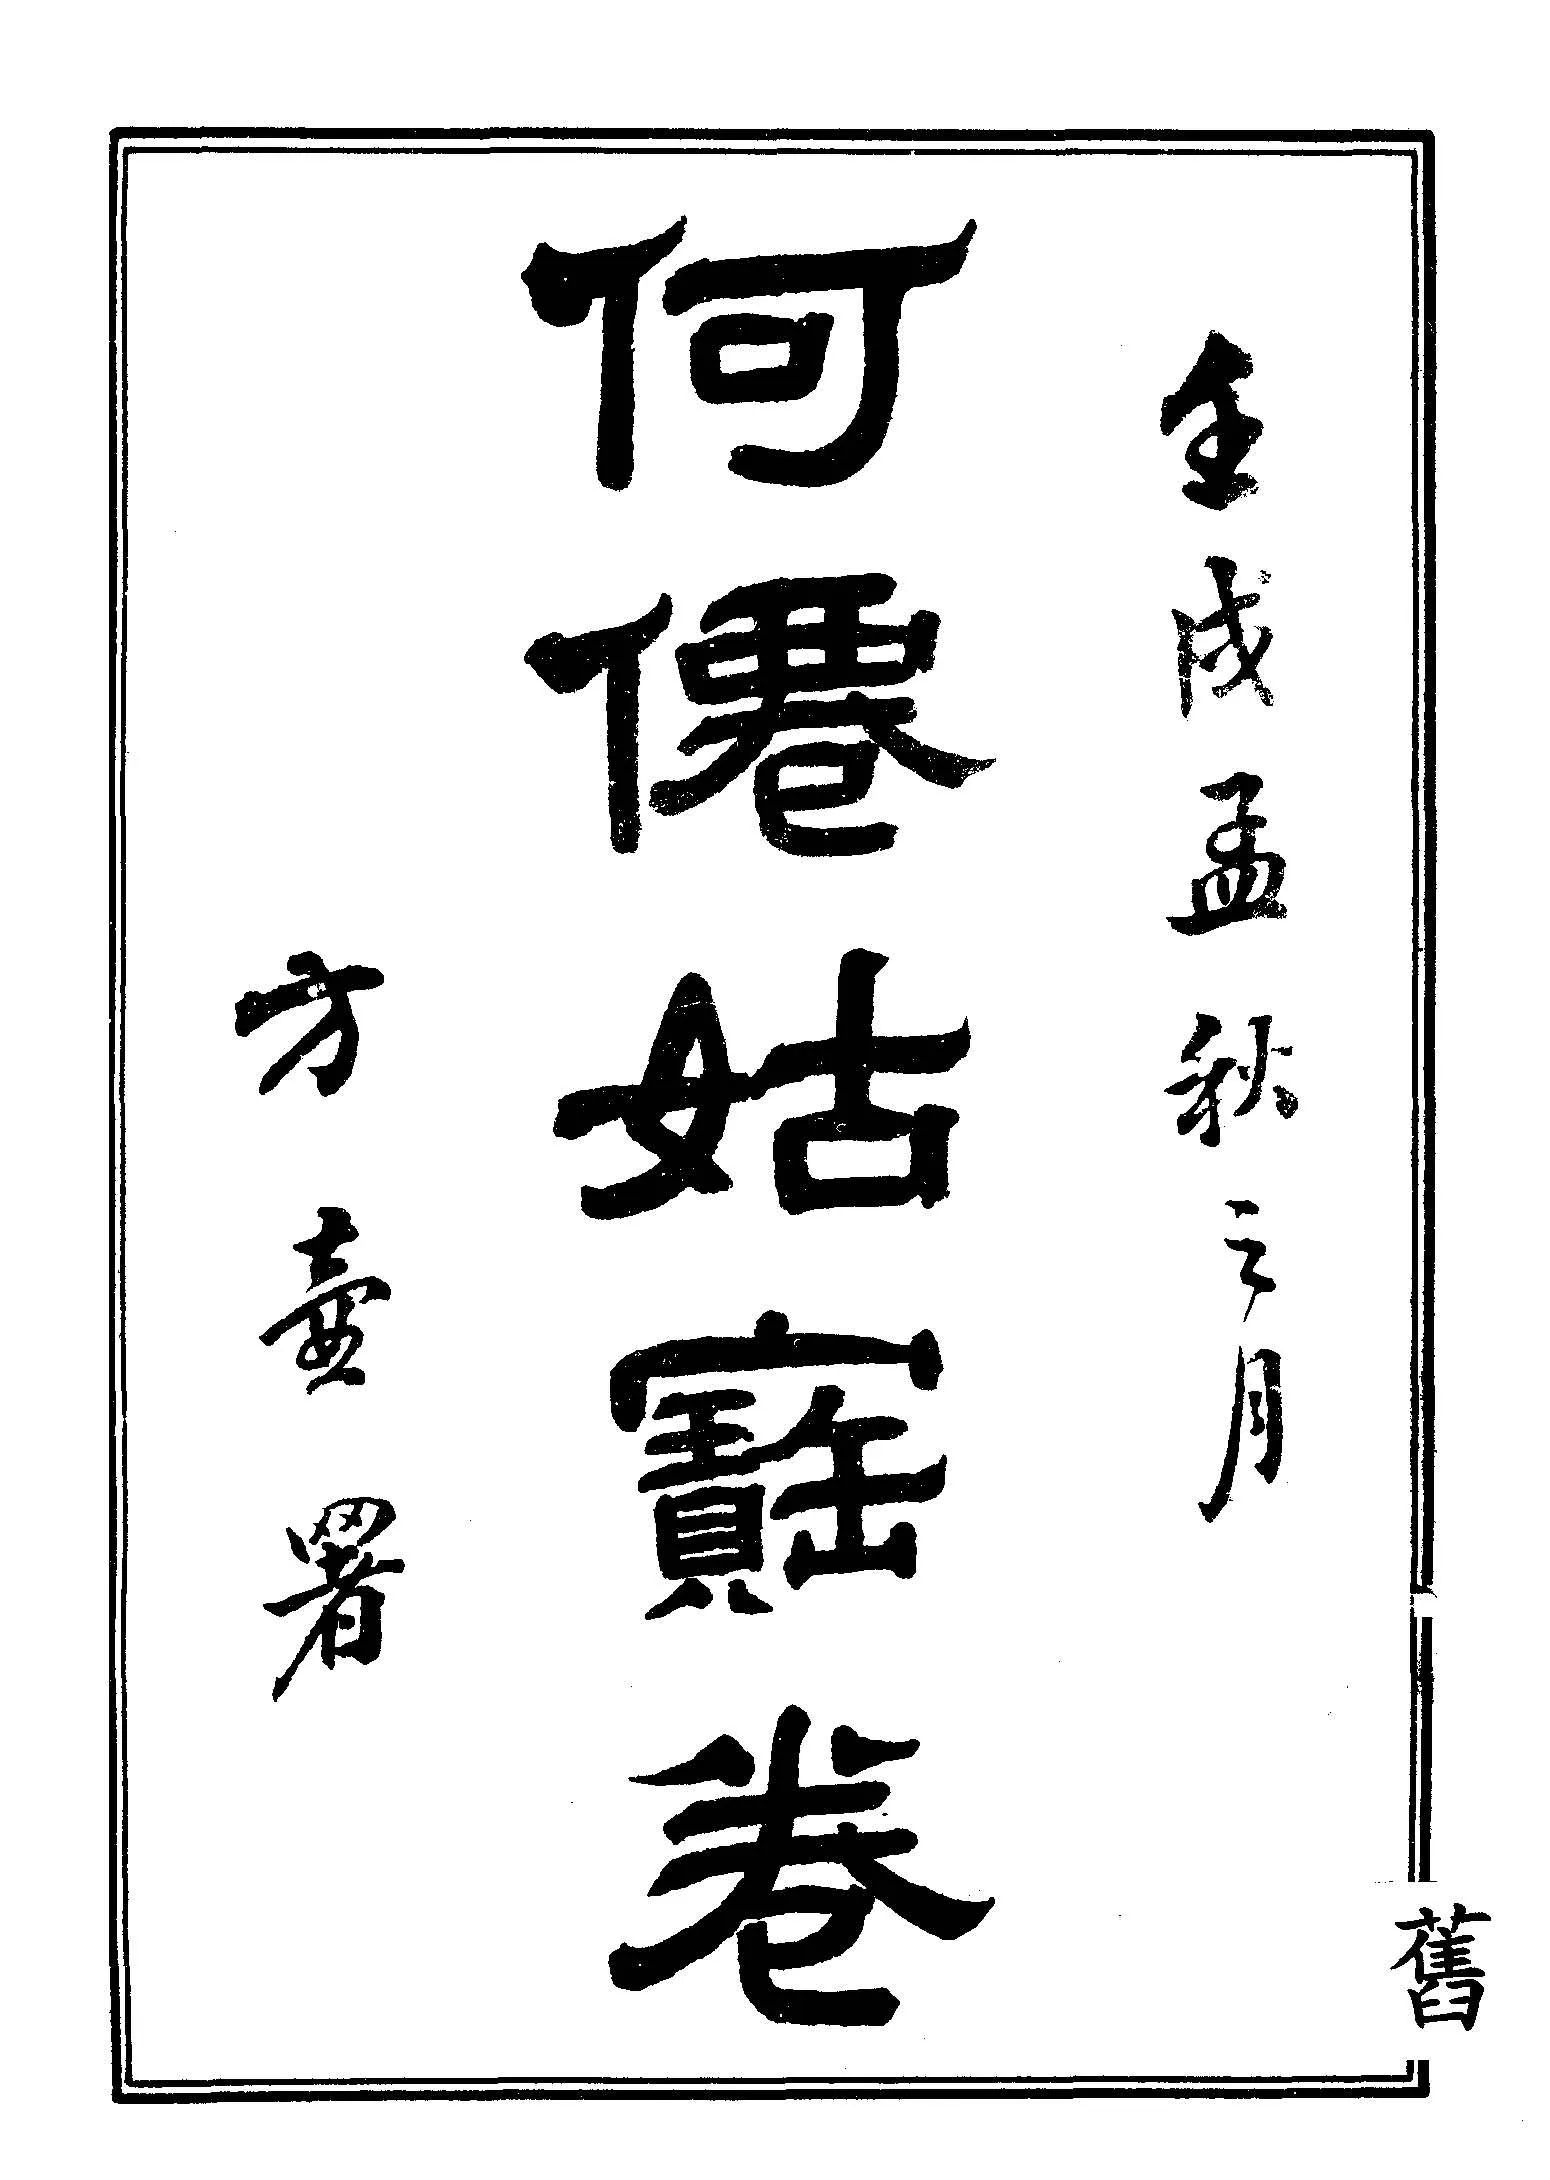 壬戌孟秋之月
何僊姑寶卷
方壺署
舊